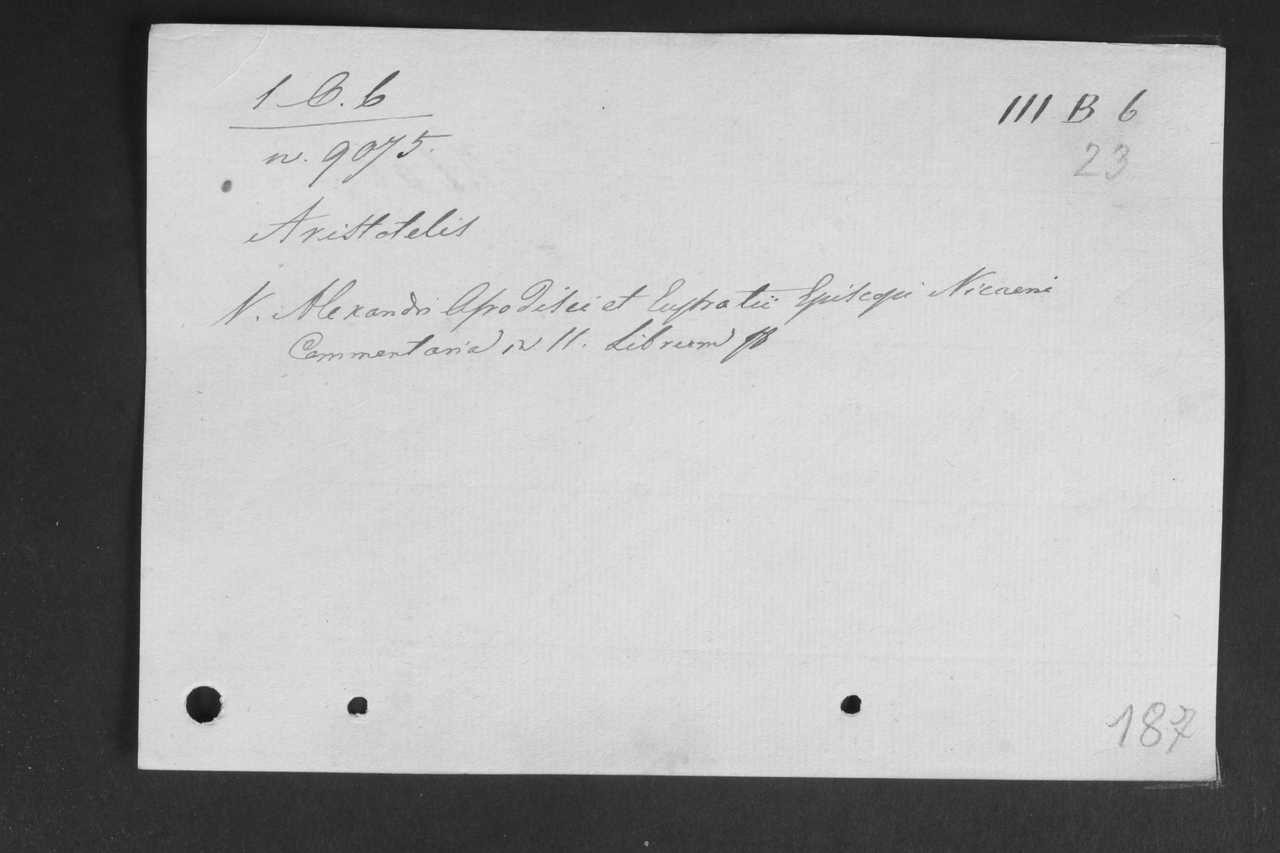 1 B. 6
III B 6
n. 9075.
23
Aristotelis
V. Alexandri Aprodisei et Eustratii Episcopi Nicaeni
Commentaria in II. Librum
187